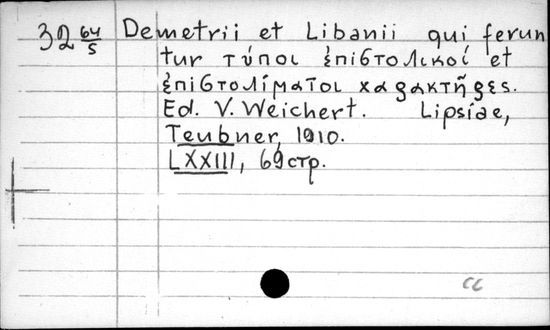 32 64/5 Demetrii et Libanii qui ferun
tur τύποι ἐπιστολικοί et
ἐπιστολιμαῖοι χαρακτῆρες.
Ed. V. Weichert. Lipsiae,
Teubner, 1910.
LXXIII, 69 стр.